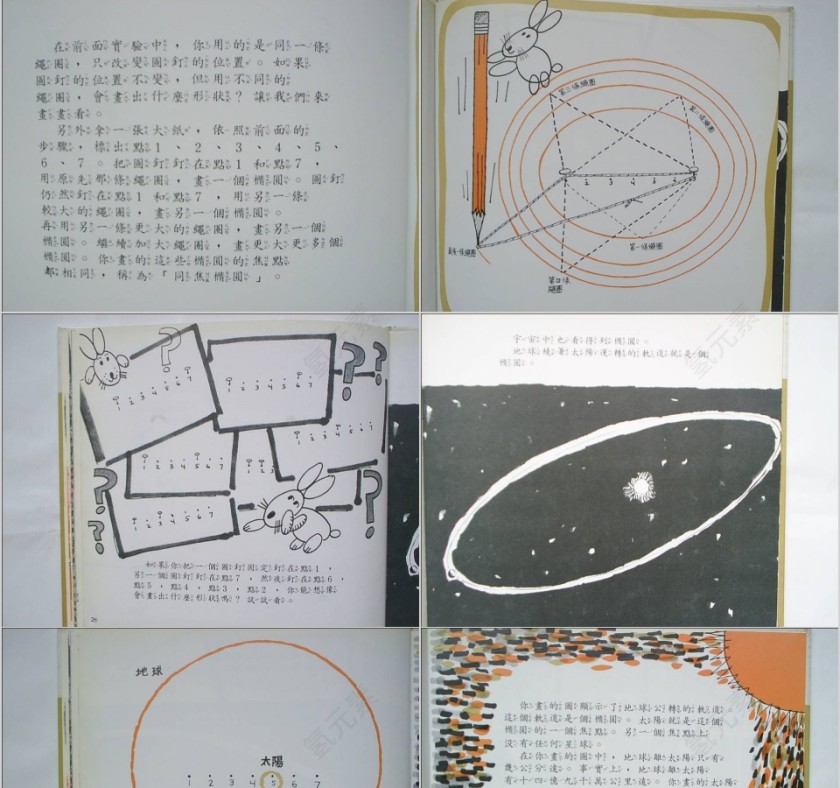 在前面實驗中，你用的是同一條
繩圈，只改變圖釘的位置。如果
圖釘的位置不變，但用不同的
繩圈，會畫出什麼形狀？讓我們來
畫畫看。
另外拿一張大紙，依照前面的
步驟，標出點1、2、3、4、5、
6、7。把圖釘釘在點1和點7，
用原先那條繩圈，畫一個橢圓。圖釘
仍然釘在點1和點7，用另一條
較大的繩圈，畫另一個橢圓。
再用另一條更大的繩圈，畫另一個
橢圓。繼續加大繩圈，畫更大更多個
橢圓。你畫的這些橢圓的焦點
都相同，稱為「同焦橢圓」。
第三條繩圈
第二條繩圈
2 3 4 5 6
第一條繩圈
第四條
繩圈
1 2 3 4 5 6 7
1 2 3 4 5 6 7
1 2 3 4 5 6 7
1 2 3 4 5 6 7
1 2 3
1 2 3 4 5 6 7
如果你把一個圖釘固定釘在點1，
另一個圖釘釘在點7，然後釘在點6，
點5，點4，點3，點2，你能想像
會畫出什麼形狀嗎？試試看。
26
宇宙中也看得到橢圓。
地球繞著太陽運轉的軌道就是一個
橢圓。
地球
太陽
1 2 3 4 5 6 7
你畫的圖顯示了地球公轉的軌道。
這個軌道是個橢圓。太陽就是這個
橢圓的一個焦點。另一個焦點上
沒有任何星球。
在你畫的圖中，地球離太陽只有
幾公分遠。事實上，地球離太陽
有十四億九千萬公里遠。你畫的太陽
氢元素
氢元素
氢元素
氢元素